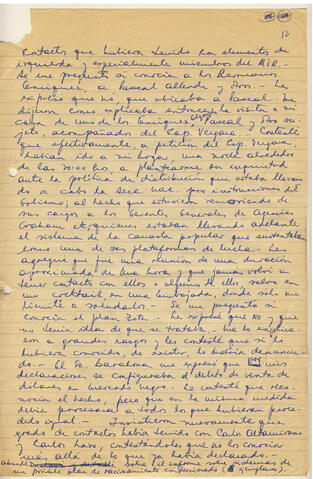 12
Contactos que hubiera tenido con elementos de
izquierda y especialmente miembros del Mir.-
Se me preguntó si conocía a los hermanos
Enríquez, a Pascal Allende y Dos.- Le
expresé que no, que ubicaba a Pascal.- Me
dijeron como explicaba entonces la visita a mi
casa de uno de los Enríquez, Pascal y Dos su-
jetos, acompañados del Cap. Vergara.- Contesté
que efectivamente, a petición del Cap. Vergara
habían ido a mi hogar, una noche alrededor
de las a plantearme su inquietud
ante la política de distribución que estaba llevan-
do a cabo la Secr. Nac. por instrucciones del
Gobierno; al hecho que estuvieran removiendo de
sus cargos a los Gerentes Generales de Agencias
Graham etc, quienes estaban llevando adelante
el sistema de la Canasta popular que sustentaba
como una de sus plataformas de lucha.- Les
agregué que fue una reunión de una duración
aproximada de una hora y que jamás volví a
tener contacto con ellos o alguno de ellos, salvo en
un Cocktail en una Embajada, donde sólo me
limité a saludarlos.- Se me preguntó si
conocía el plan Zeta.- Le expresé que No y que
no tenía idea de que se trataba.- Me lo explica-
ron a grandes rasgos y les contesté que si lo
hubiera conocido, de existir, lo habría denuncia-
do.- El Sr. Barahona me expresó que por mis
declaraciones se configuraba el delito de venta de
dólares en mercado negro.- Le contesté que reco-
nocía el hecho, pero que en la misma medida
debía procesarse a todo lo que hubieran proce-
dido igual.- Insistieron nuevamente que
grado de contactos había tenido con Carlos Altamirano
y Carlos Lazo, contestándoles que no los conocía
más allá de lo que ya había declarado.-
sobre el informe sobre sistemas de
un posible plan de racionamiento confeccionado